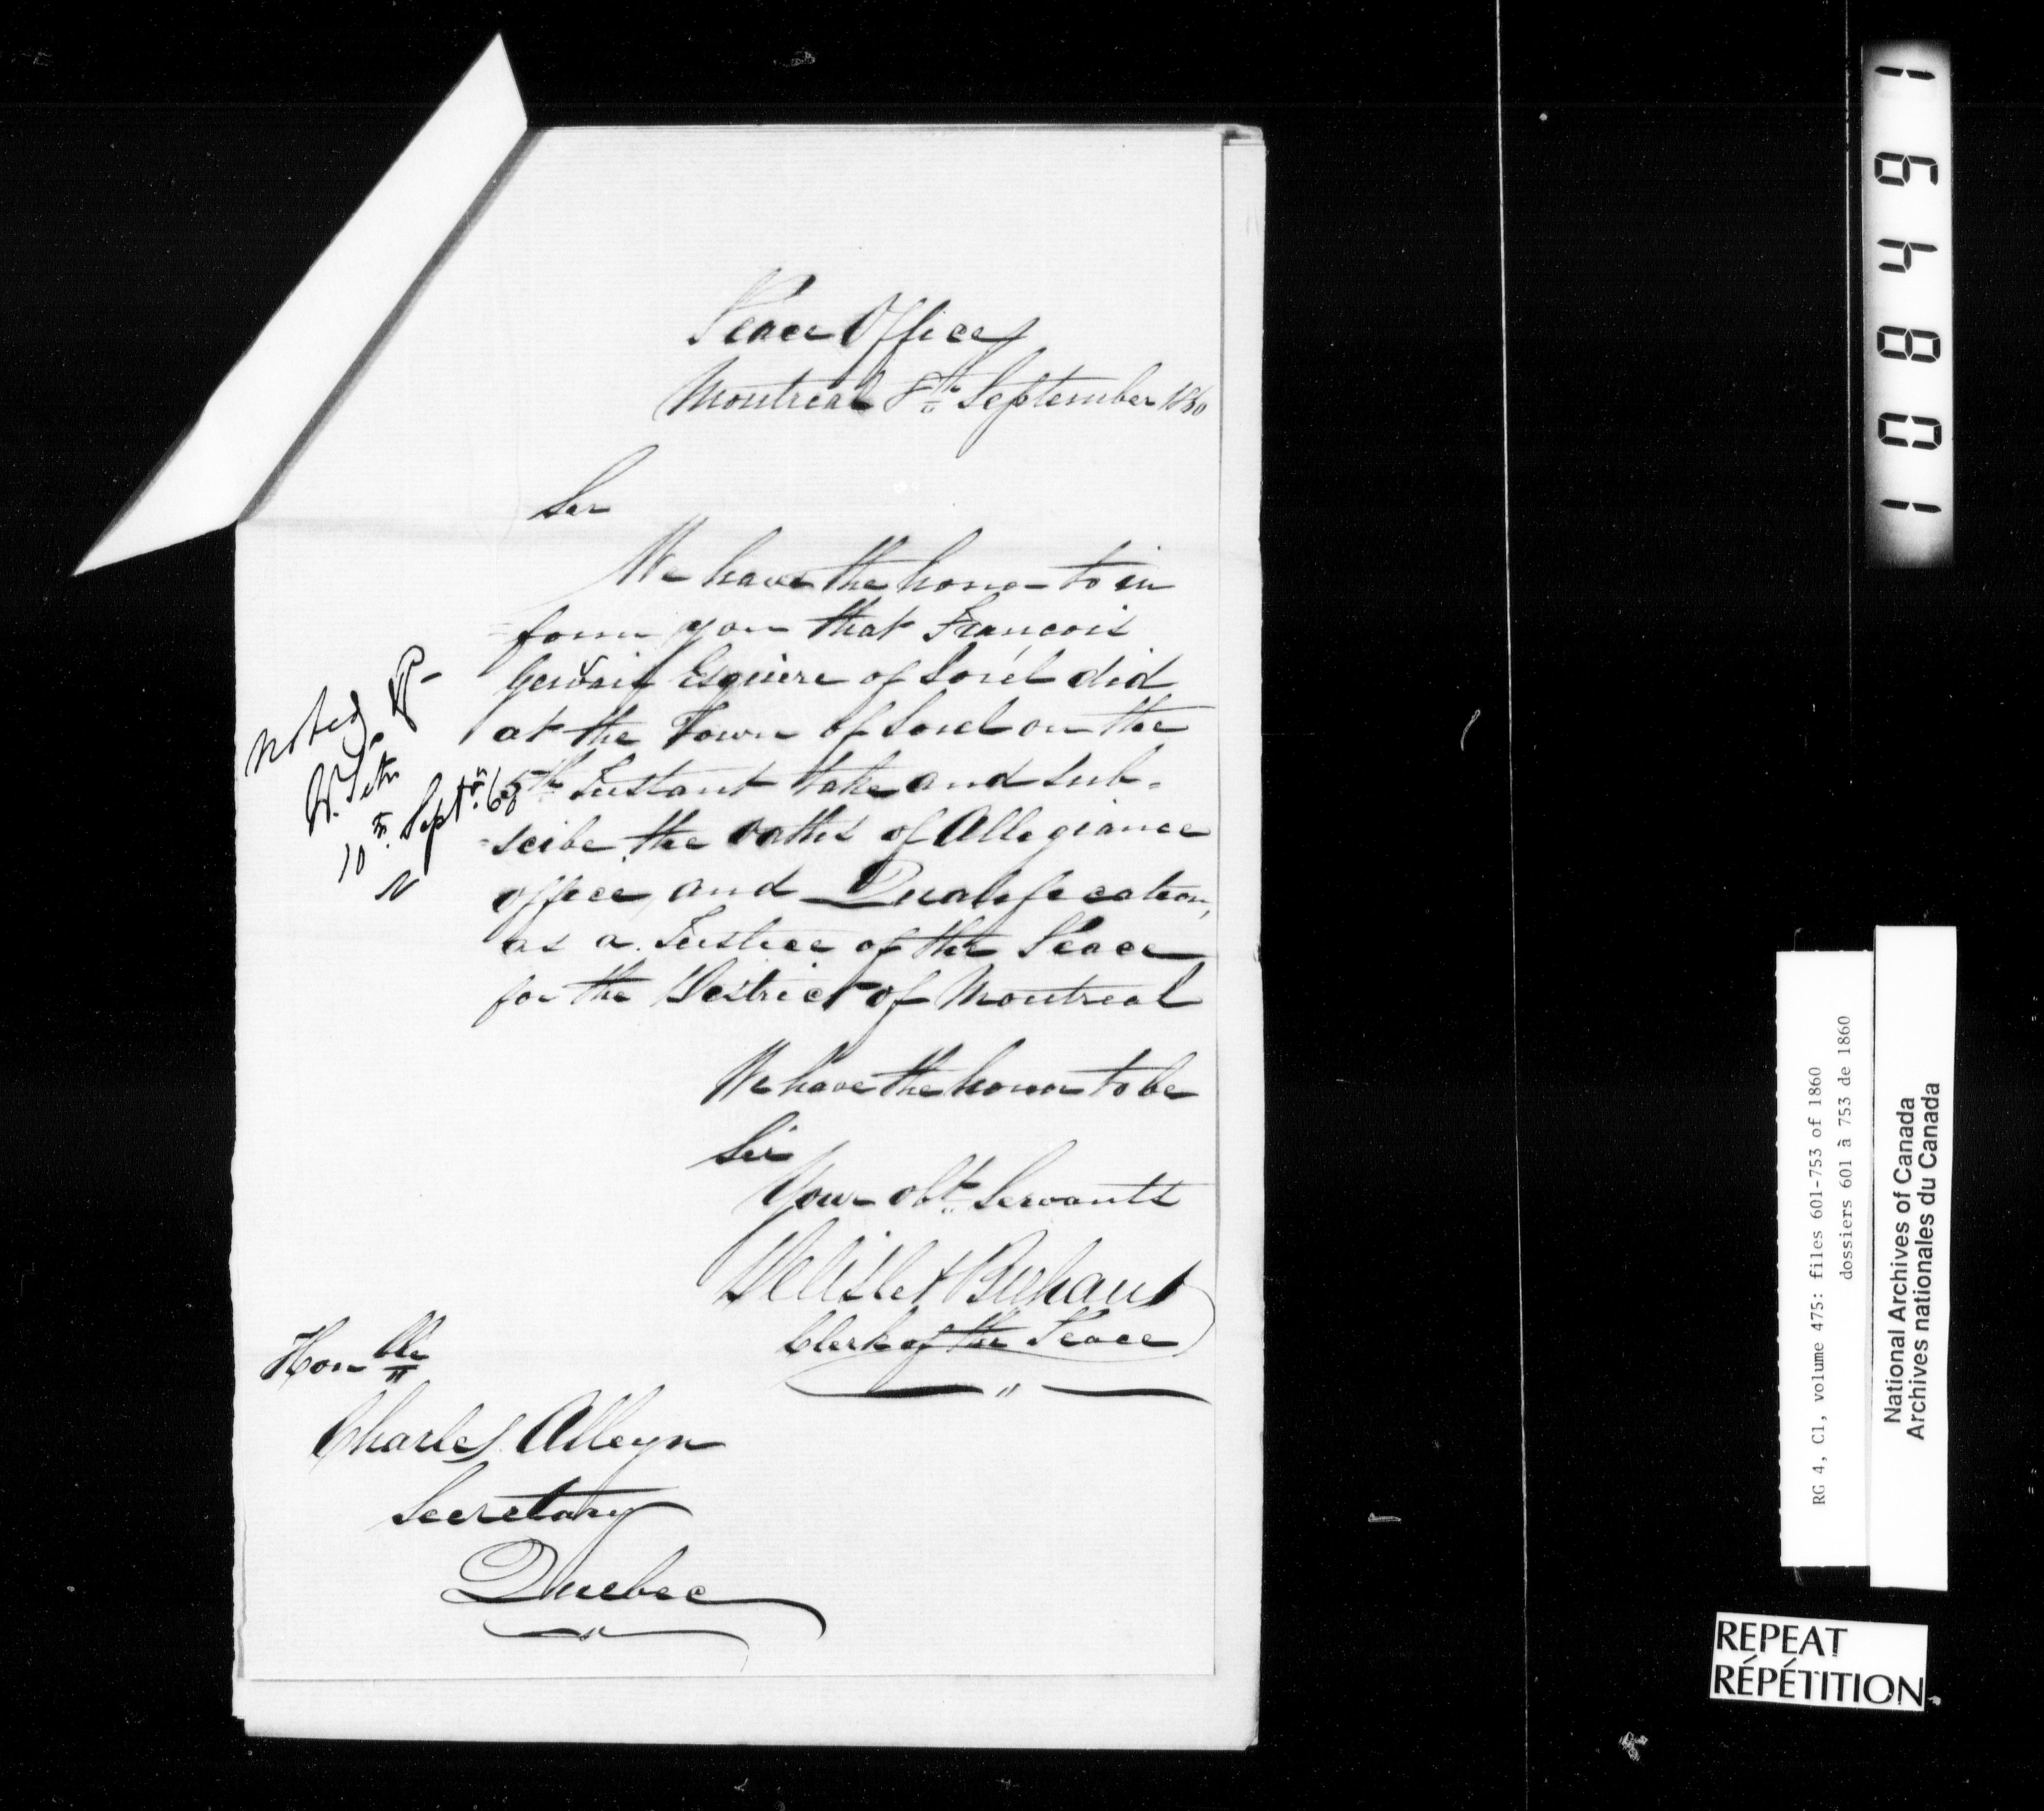 Peace Office
Montreal 8th September 1860
Sir
We have the honor to in
=form you that François
Gervais Esquire of Sorel did
at the Town of Sorel on the
5th Instant take and sub=
=scibe the oaths of Allegiance
office, and Qualification,
as a Justice of the Peace
for the District of Montreal
We have the honor to be
Sir
Your obt. Servants
Delisle & Brehaut
Clerk of the Peace
Honble
Charles Alleyn
Secretary
Quebec
noted
10th Septr. 60
N
1 0 8 4 9 1
RG 4, C1, volume 475: files 601-753 of 1860
dossiers 601 à 753 de 1860
National Archives of Canada
Archives nationales du Canada
REPEAT
RÉPÉTITION